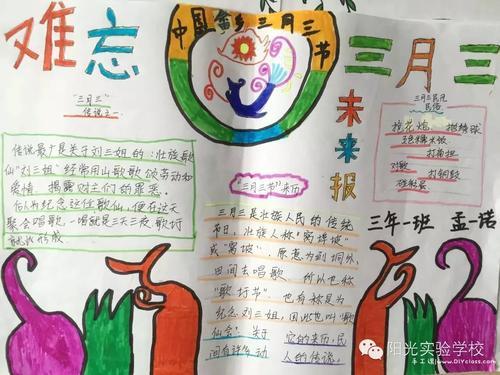 难忘
中国壮乡三月三节
三月三
未来报
"三月三"
传说之一
传说最广是关于刘三姐的：壮族歌
仙"刘三姐"经常用山歌歌颂劳动和
爱情，揭露财主们的罪恶。
后人为纪念这位歌仙，便在这天
聚会唱歌，一唱就是三天三夜，歌圩
就此形成
"三月三节"来历
三月三是壮族人民的传统
节日，壮族人称"窝埠坡"
或"窝坡"，原意为到垌外、
田间去唱歌，所以也称
"歌圩节"，也有称是为
纪念刘三姐，因此也叫"歌
仙会。关于
它的来历，民
间有许多动
人的传说。
三月三民风
民俗
抢花炮
抛绣球
五色糯米饭
打扁担
对歌
打铜鼓
碰彩蛋
三年一班 孟一诺
阳光实验学校
手工课www.DIYclass.com